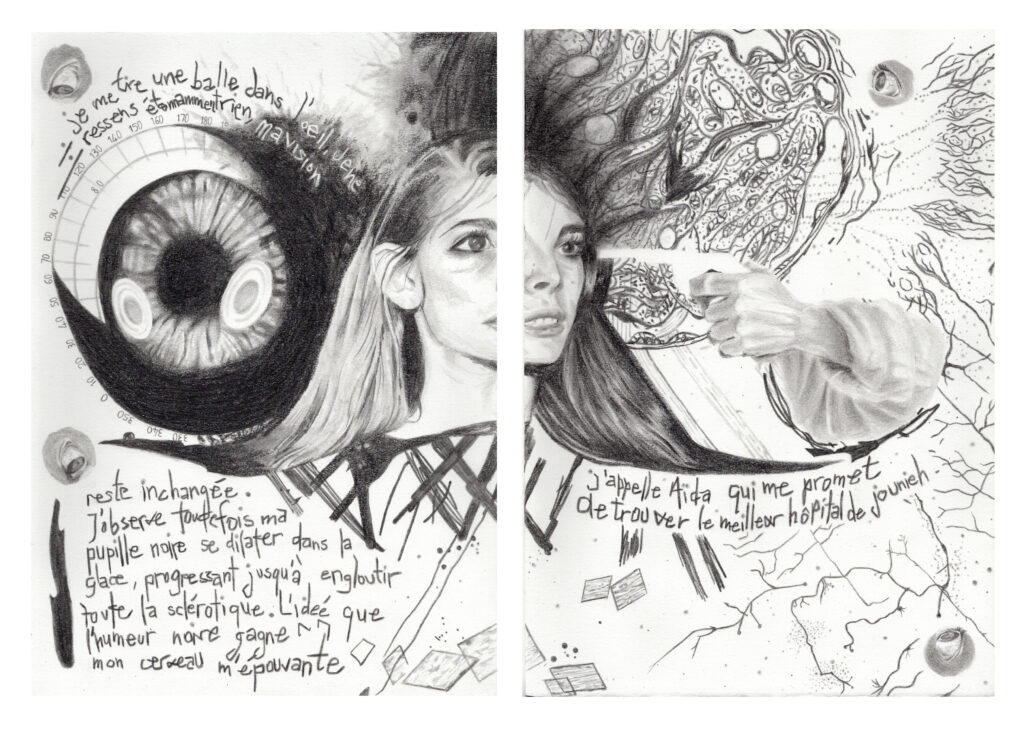 je me tire une balle dans l'œil. Je ne
ressens étonnamment rien
ma vision
180
170
160
150
140
130
120
110
90
80
70
60
50
40
30
20
10
0
350
340
330
reste inchangée.
J'observe toutefois ma
pupille noire se dilater dans la
glace, progressant jusqu'à engloutir
toute la sclérotique. L'ideé que
l'humeur noire gagne
mon cerveau m'épouvante
j'appelle Aïda qui me promet
de trouver le meilleur hôpital de jounieh